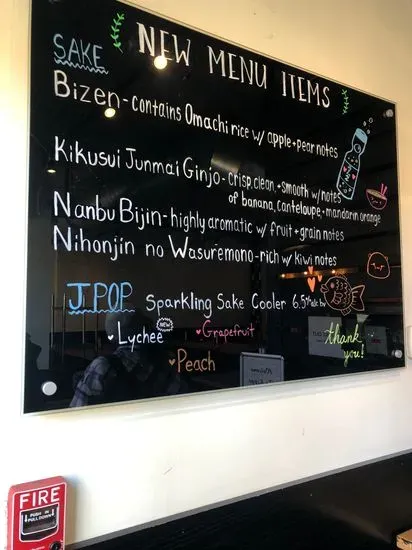 NEW MENU ITEMS
SAKE
Bizen - contains Omachi rice w/ apple + pear notes
Kikusui Junmai Ginjo - crisp, clean, + smooth w/ notes
of banana, canteloupe, + mandarin orange
Nanbu Bijin - highly aromatic w/ fruit + grain notes
Nihonjin no Wasuremono - rich w/ kiwi notes
J.POP Sparkling Sake Cooler 6.5%
Lychee NEW Grapefruit
Peach
thank you!
FIRE
PUSH IN
PULL DOWN